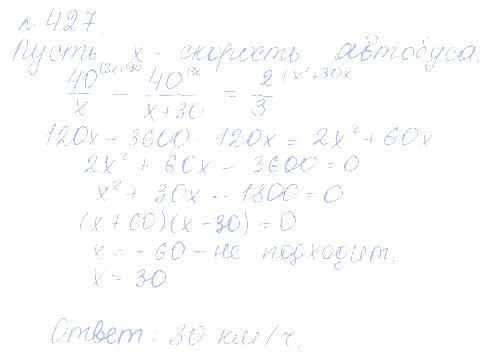 № 427.
Пусть x - скорость автобуса.
40^(3x+90 / x - 40^(3x / x+30 = 2^(x²+30x / 3
120x + 3600 - 120x = 2x² + 60x
2x² + 60x - 3600 = 0
x² + 30x - 1800 = 0
(x + 60)(x - 30) = 0
x = -60 - не подходит.
x = 30
Ответ: 30 км/ч.